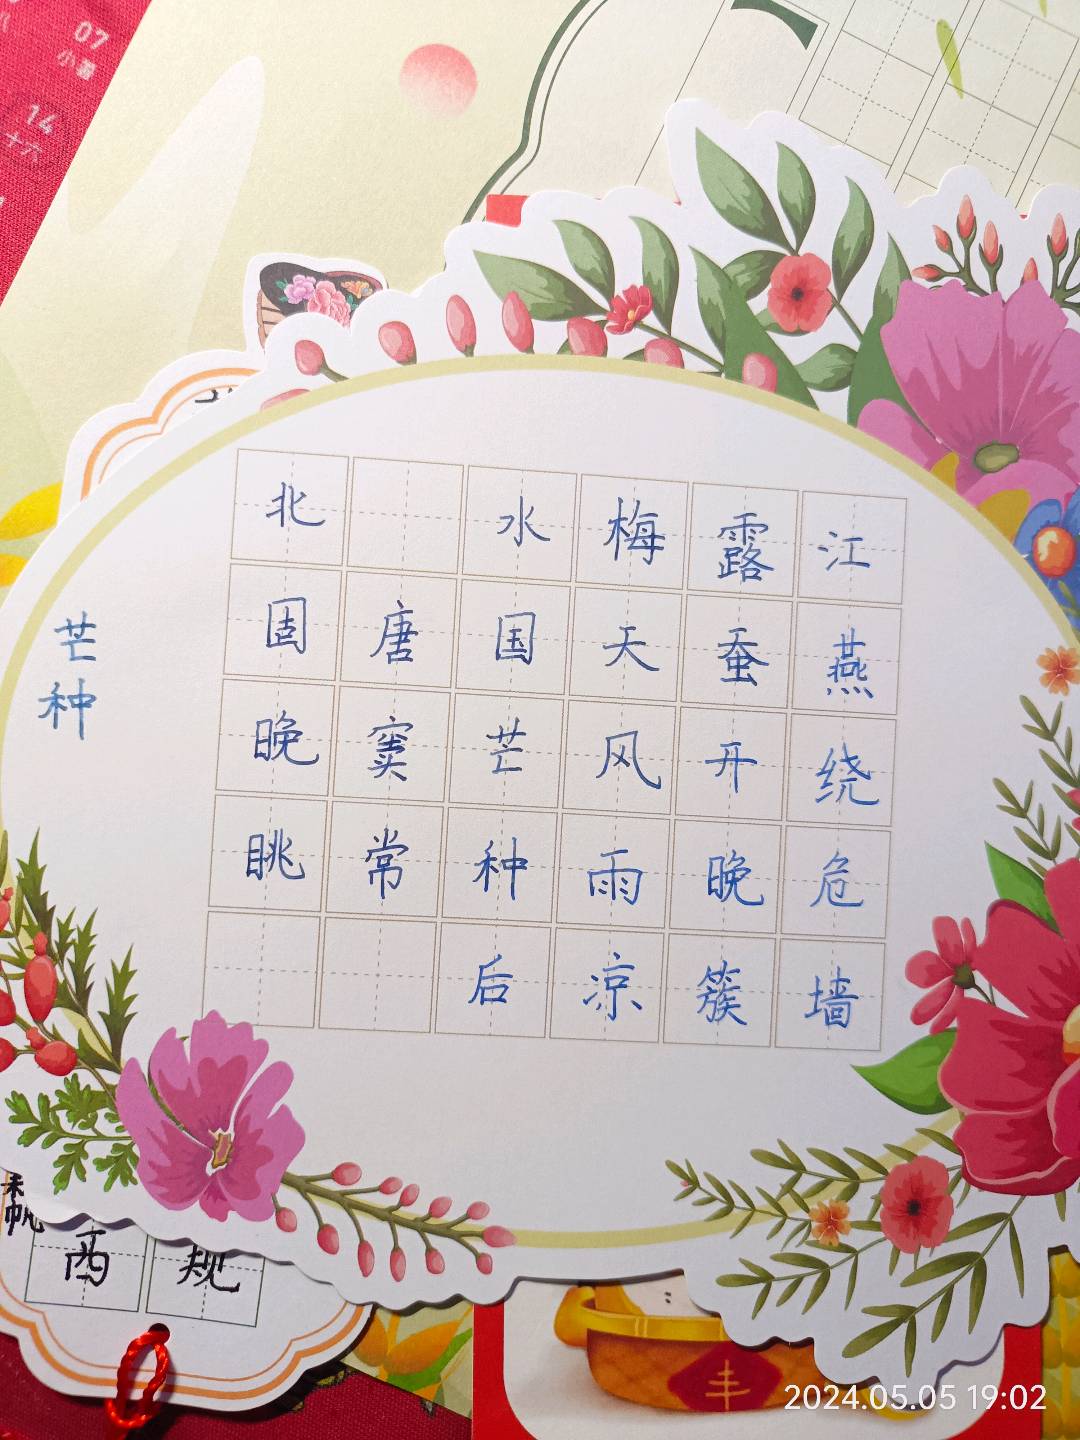 07
小暑
14
十六
芒种
北固晚眺
唐窦常
水国芒种后
梅天风雨凉
露蚕开晚簇
江燕绕危墙
帆
规
丰
2024.05.05 19:02